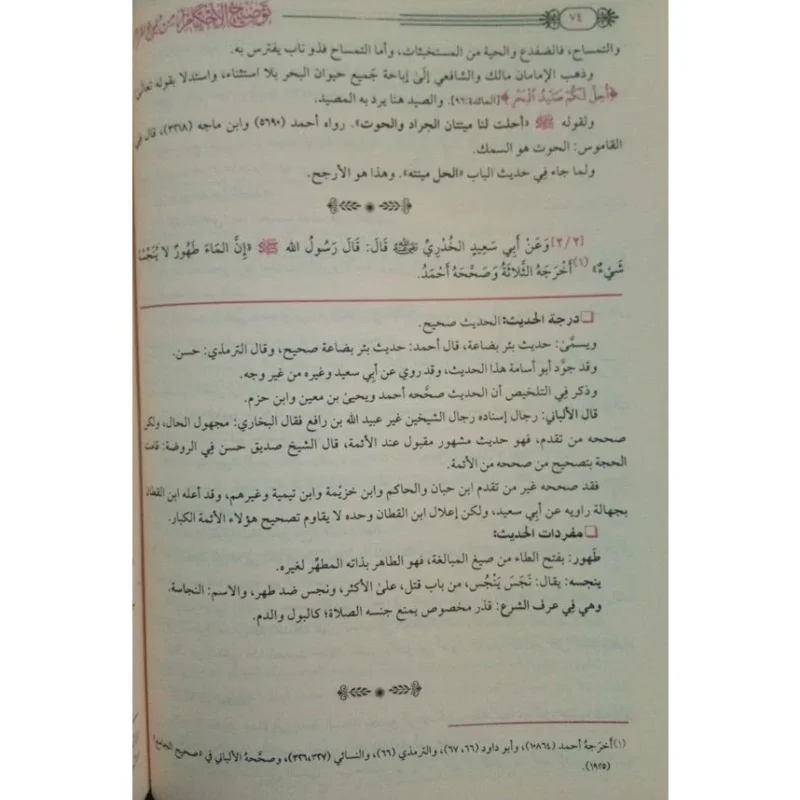 ٧٤
توضيح الأحكام من بلوغ المرام
والتمساح، فالضفدع والحية من المستخبثات، وأما التمساح فذو ناب يفترس به.
وذهب الإمامان مالك والشافعي إلى إباحة جميع حيوان البحر بلا استثناء، واستدلا بقوله تعالى
﴿أُحِلَّ لَكُمْ صَيْدُ الْبَحْرِ﴾ [المائدة: ٩٦]. والصيد هنا يرد به المصيد.
ولقوله ﷺ «أحلت لنا ميتتان الجراد والحوت». رواه أحمد (٥٦٩٠) وابن ماجه (٣٢١٨)، قال في
القاموس: الحوت هو السمك.
ولما جاء في حديث الباب «الحل ميتته». وهذا هو الأرجح.
[٢/٢] وَعَنْ أَبِي سَعِيدٍ الخُدْرِيِّ رضي الله عنه قَالَ: قَالَ رَسُولُ الله ﷺ «إِنَّ المَاءَ طَهُورٌ لا يُنَجِّسُهُ
شَيْءٌ» (١) أَخْرَجَهُ الثَّلاثَةُ وَصَحَّحَهُ أَحْمَدُ.
درجة الحديث: الحديث صحيح.
ويسمَّى: حديث بئر بضاعة، قال أحمد: حديث بئر بضاعة صحيح، وقال الترمذي: حسن.
وقد جوَّد أبو أسامة هذا الحديث، وقد روي عن أبي سعيد وغيره من غير وجه.
وذكر في التلخيص أن الحديث صحَّحه أحمد ويحيى بن معين وابن حزم.
قال الألباني: رجال إسناده رجال الشيخين غير عبيد الله بن رافع فقال البخاري: مجهول الحال، ولكن
صححه من تقدم، فهو حديث مشهور مقبول عند الأئمة، قال الشيخ صديق حسن في الروضة: قامت
الحجة بتصحيح من صححه من الأئمة.
فقد صححه غير من تقدم ابن حبان والحاكم وابن خزيْمة وابن تيمية وغيرهم، وقد أعله ابن القطان
بجهالة راويه عن أبي سعيد، ولكن إعلال ابن القطان وحده لا يقاوم تصحيح هؤلاء الأئمة الكبار.
مفردات الحديث:
طَهور: بفتح الطاء من صيغ المبالغة، فهو الطاهر بذاته المطهِّر لغيره.
ينجسه: يقال: نَجَسَ يَنْجُس، من باب قتل، على الأكثر، ونجس ضد طهر، والاسم: النجاسة.
وهي في عرف الشرع: قذر مخصوص يمنع جنسه الصلاة؛ كالبول والدم.
(١) أخرَجهُ أحمد (١٠٨٦٤)، وأبو داود (٦٦، ٦٧)، والترمذي (٦٦)، والنسائي (٣٢٦، ٣٢٧)، وصحَّحهُ الألباني في «صحيح الجامع»
(١٩٢٥).